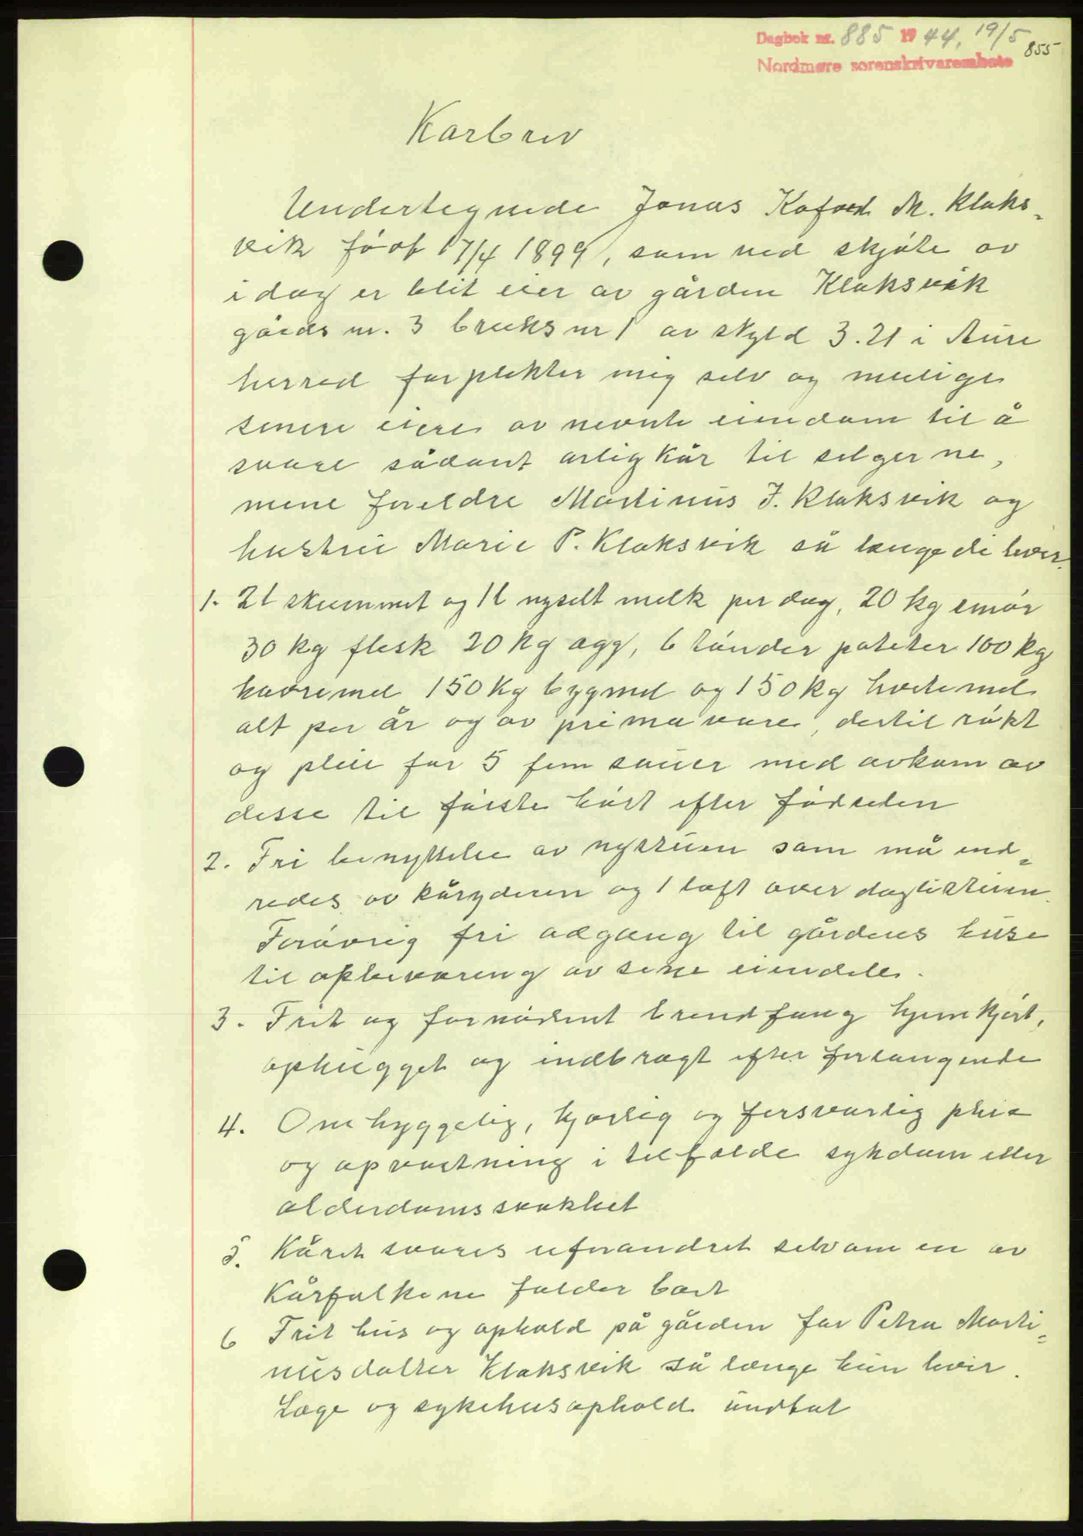 Dagbok nr. 885 1944, 19/5
855
Nordmøre sorenskrivarembete
Kårbrev
Undertegnede Jonas Kofoed M. Klaks-
vik født 17/4 1899, som ved skjøte av
idag er blit eier av gården Klaksvik
gårds nr. 3 bruks nr 1 av skyld 3.21 i Aure
herred forplikter mig selv og mulige
senere eiere av nevnte eiendom til å
svare sådant årlig kår til selgerne,
mine foreldre Martinus J. Klaksvik og
hustru Marie P. Klaksvik så længe de lever.
1. 2 l skummet og 1 l nysilt melk per dag, 20 kg smør
30 kg flesk 20 kg egg, 6 tønder poteter 100 kg
havremel 150 kg bygmel og 150 kg hvetemel
alt per år og av prima vare, dertil røkt
og pleie for 5 fem sauer med avkom av
desse til første høst efter fødselen
2. Fri benyttelse av nystuen som må ind-
redes av kåryderen og 1 loft over dagligstuen.
Forøvrig fri adgang til gårdens huse
til opbevaring av sine eiendele.
3. Frit og fornødent brendfang hjemkjørt,
ophugget og indbragt efter forlangende
4. Omhyggelig, kjærlig og forsvarlig pleie
og opvartning i tilfælde sykdom eller
alderdomssvakhet
5. Kåret svares uforandret selv om en av
kårfolkene falder bort
6 Frit hus og ophold på gården for Petra Marti-
nusdatter Klaksvik så længe hun lever.
Læge og sykehusophold undtat